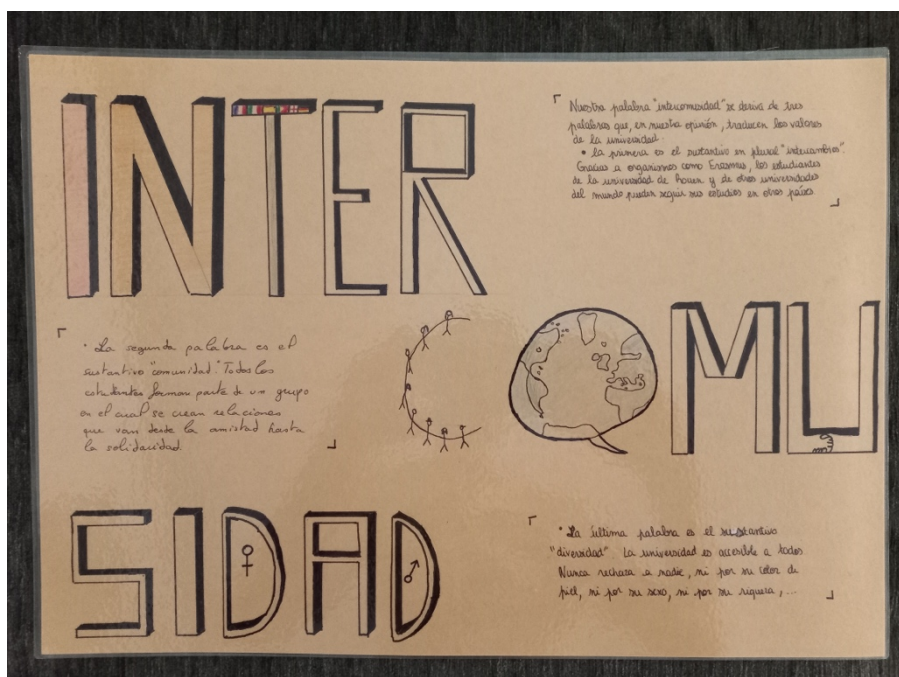 INTER
Nuestra palabra "intercomusidad" se deriva de tres
palabras que, en nuestra opinión, traducen los valores
de la universidad:
• la primera es el sustantivo en plural "intercambios".
Gracias a organismos como Erasmus, los estudiantes
de la universidad de Rouen y de otras universidades
del mundo pueden seguir sus estudios en otros países
COMU
• La segunda palabra es el
sustantivo "comunidad". Todos los
estudiantes forman parte de un grupo
en el cual se crean relaciones
que van desde la amistad hasta
la solidaridad.
SIDAD
• La última palabra es el sustantivo
"diversidad". La universidad es accesible a todos
Nunca rechaza a nadie, ni por su color de
piel, ni por su sexo, ni por su riqueza, ...